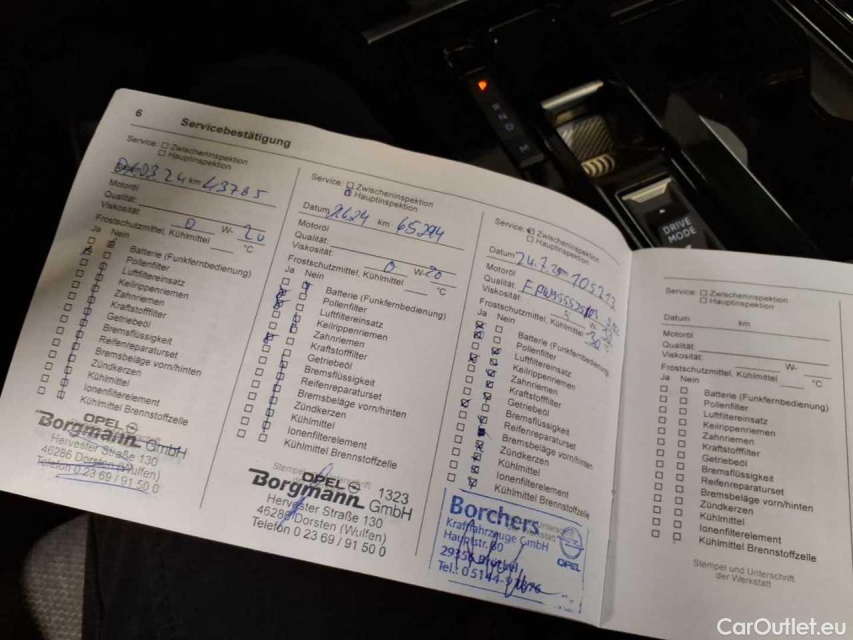 6
Servicebestätigung
Service: Zwischeninspektion
Hauptinspektion
24 km 43785
Motoröl
Qualität:
Viskosität: 0 W- 20
Frostschutzmittel, Kühlmittel °C
Ja Nein
Batterie (Funkfernbedienung)
Pollenfilter
Luftfiltereinsatz
Keilrippenriemen
Zahnriemen
Kraftstofffilter
Getriebeöl
Bremsflüssigkeit
Reifenreparaturset
Bremsbeläge vorn/hinten
Zündkerzen
Kühlmittel
Ionenfilterelement
Kühlmittel Brennstoffzelle
OPEL
Borgmann GmbH
Hervester Straße 130
46286 Dorsten (Wulfen)
Telefon 0 23 69 / 91 50 0
Service: Zwischeninspektion
Hauptinspektion
Datum 2624 km 65294
Motoröl
Qualität:
Viskosität: 0 W- 20
Frostschutzmittel, Kühlmittel °C
Ja Nein
Batterie (Funkfernbedienung)
Pollenfilter
Luftfiltereinsatz
Keilrippenriemen
Zahnriemen
Kraftstofffilter
Getriebeöl
Bremsflüssigkeit
Reifenreparaturset
Bremsbeläge vorn/hinten
Zündkerzen
Kühlmittel
Ionenfilterelement
Kühlmittel Brennstoffzelle
Stempel
OPEL 1323
Borgmann GmbH
Hervester Straße 130
46286 Dorsten (Wulfen)
Telefon 0 23 69 / 91 50 0
Service: Zwischeninspektion
Hauptinspektion
Datum 24.7. km 105212
Motoröl
Qualität:
Viskosität:
Frostschutzmittel, Kühlmittel
Ja Nein
Batterie (Funkfernbedienung)
Pollenfilter
Luftfiltereinsatz
Keilrippenriemen
Zahnriemen
Kraftstofffilter
Getriebeöl
Bremsflüssigkeit
Reifenreparaturset
Bremsbeläge vorn/hinten
Zündkerzen
Kühlmittel
Ionenfilterelement
Kühlmittel Brennstoffzelle
Borchers
Kraftfahrzeuge GmbH
Hauptstr. 80
OPEL
Tel.: 0 5144-
Service: Zwischeninspektion
Hauptinspektion
Datum km
Motoröl
Qualität:
Viskosität: W-
Frostschutzmittel, Kühlmittel °C
Ja Nein
Batterie (Funkfernbedienung)
Pollenfilter
Luftfiltereinsatz
Keilrippenriemen
Zahnriemen
Kraftstofffilter
Getriebeöl
Bremsflüssigkeit
Reifenreparaturset
Bremsbeläge vorn/hinten
Zündkerzen
Kühlmittel
Ionenfilterelement
Kühlmittel Brennstoffzelle
Stempel und Unterschrift
der Werkstatt
R N D M
DRIVE
MODE
CarOutlet.eu